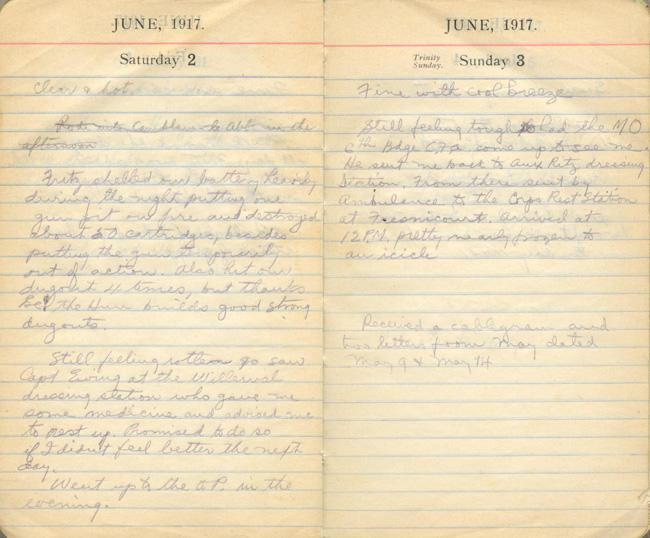 JUNE, 1917.
Saturday 2
Clear & hot.
Rode into Camblain to Abt in the
afternoon
Fritz shelled our battery heavily
during the night putting one
gun pit on fire and destroyed
about 50 cartridges, besides
putting the gun temporarily
out of action. Also hit our
dugout 4 times, but thanks
be! the Hun builds good strong
dugouts.
Still feeling rotten so saw
Capt Ewing at the Willerval
dressing station who gave me
some medicine and advised me
to rest up. Promised to do so
if I didn't feel better the next
day.
Went up to the O.P. in the
evening.
JUNE, 1917.
Trinity
Sunday.
Sunday 3
Fine with cool breeze
Still feeling tough had the M O
6th Bdge CFA come up to see me.
He sent me back to Aux Ritz dressing
station. From there sent by
Ambulance to the Corps Rest Station
at Fresnicourt. Arrived at
12 PM, pretty nearly frozen to
an icicle
Received a cablegram and
two letters from May dated
May 9 & May 14